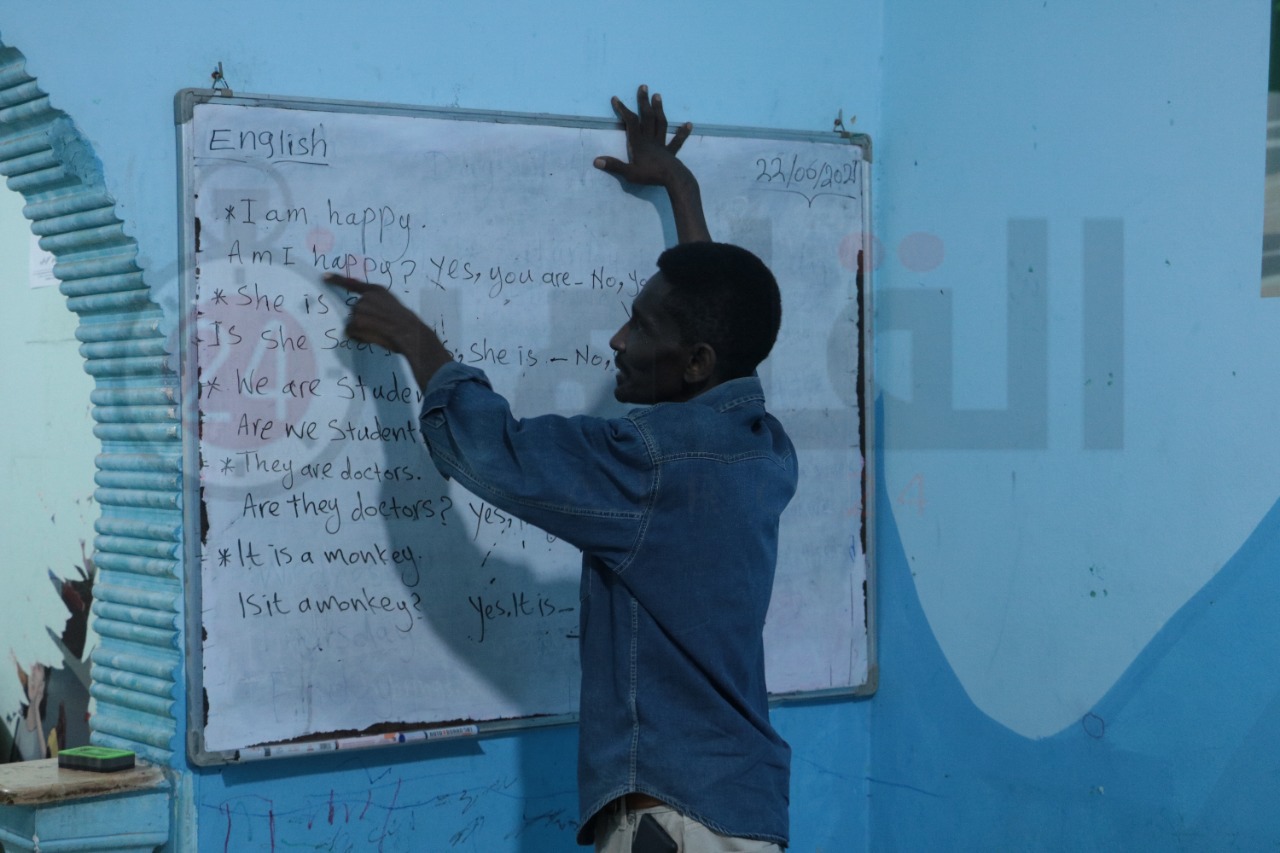 English
22/06/2021
*I am happy.
Am I happy? Yes, you are - No,
*She is
Is She Sad , She is - No,
* We are Studen
Are We Student
*They are doctors.
Are they doctors? Yes,
*It is a monkey.
Is it a monkey? Yes, It is -
24